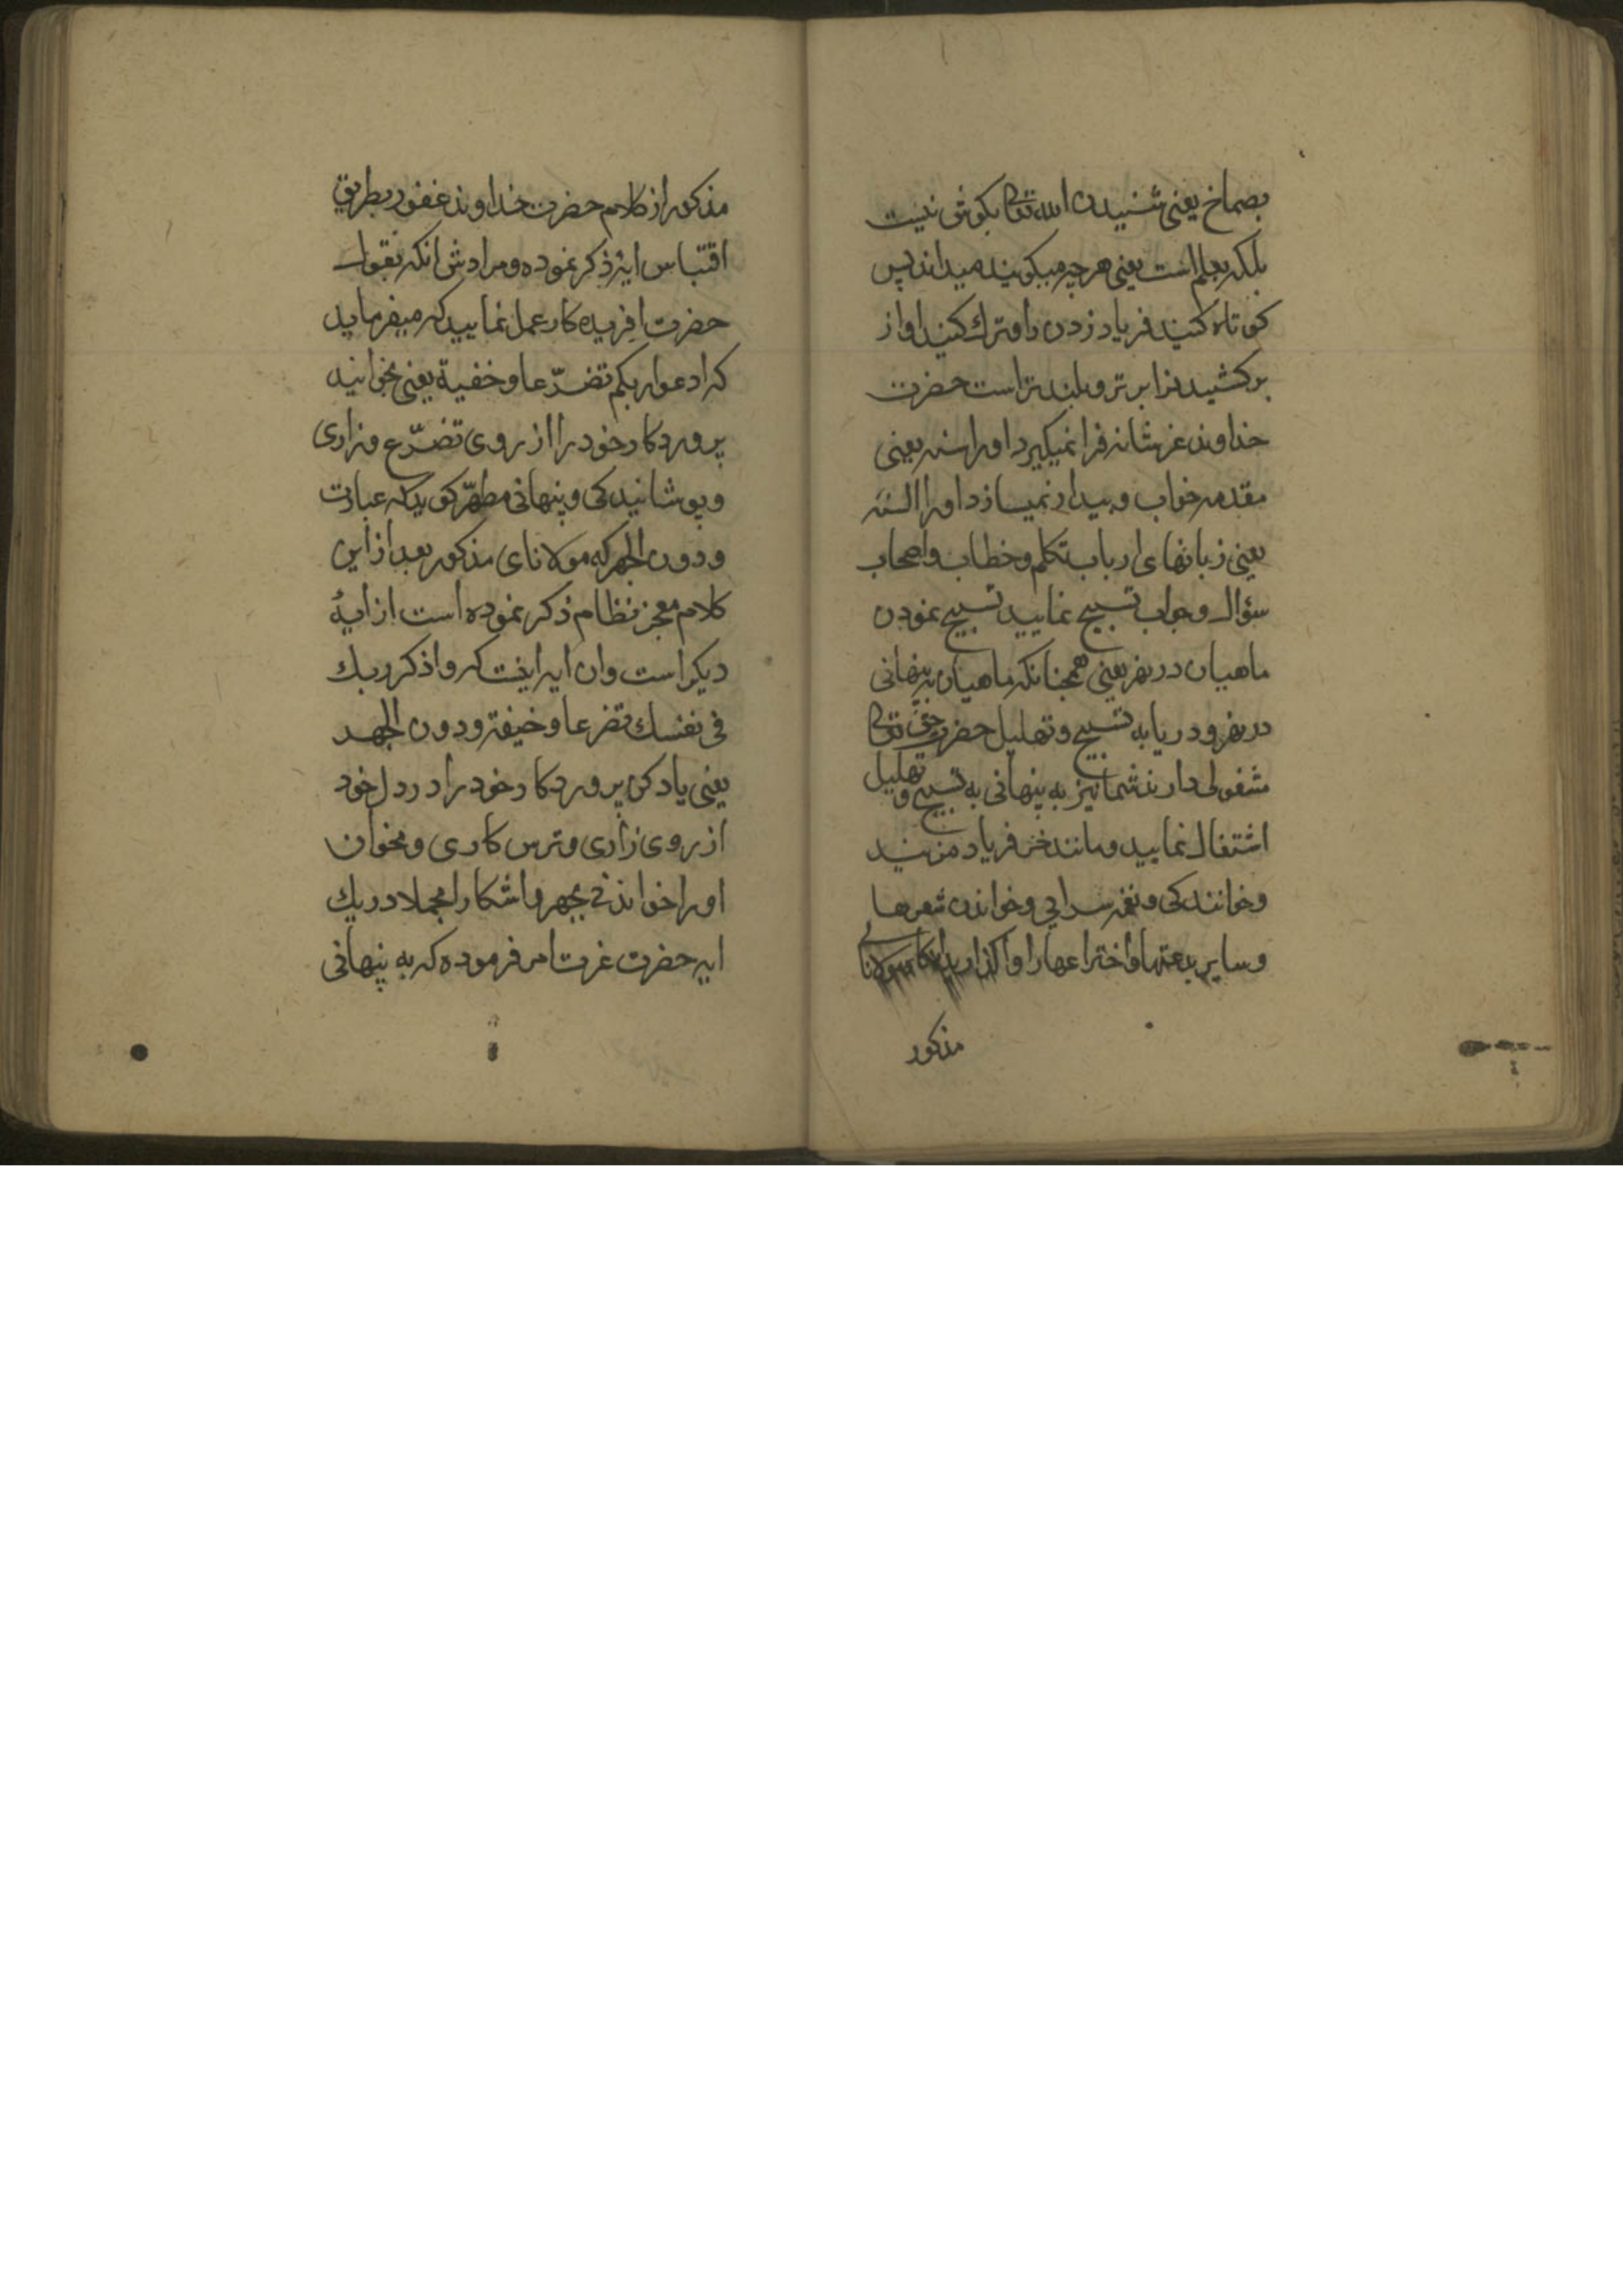 بصماخ یعنی شنیدن الله تعالی بکوش نیست
بلکه بعلم است یعنی هر چه میکویند میداند پس
کوتاه کنید فریاد زدن را و ترك کنید اواز
بر کشیدنرا برتر و بلند تر است حضرت
خداوند عز شانه فرا نمیکیرد او را سنه یعنی
مقدمه خواب و بیدار نمیسازد او را السنه
یعنی زبانهای ارباب تکلم و خطاب و اصحاب
سؤال و جواب تسبیح نمایید تسبیح نمودن
ماهیان در نهر یعنی همچنانکه ماهیان به پنهانی
در نهر و دریا به تسبیح و تهلیل حضرت حق تعالی
مشغولی دارند شما نیز به پنهانی به تسبیح و تهلیل
اشتغال نمایید و مانند خر فریاد مزنید
و خوانندکی و نغمه سرایی و خواندن شعرها
و سایر بدعتها و اختراعها را واکذارید مولانای
مذکور
مذکور از کلام حضرت خداوند غفور بطریق
اقتباس اینرا ذکر نموده و مرادش انکه بقول
حضرت افریدەکار عمل نمایید که میفرماید
که ادعوا ربکم تضرّعا و خفیة یعنی بخوانید
پروردکار خود را از روی تضرّع و زاری
و پوشانیدکی و پنهانی مطهّر کوید که عبارت
و دون الجهر که مولانای مذکور بعد از این
کلام معجز نظام ذکر نموده است از ایهٔ
دیکر است و ان ایه اینست که و اذکر ربك
فی نفسك تضرعا و خیفة و دون الجهر
یعنی یاد کن پروردکار خود را در دل خود
از روی زاری و ترس کاری و بخوان
او را خواندنی بجهر و اشکارا مجملا در یك
ایه حضرت عزت امر فرموده که به پنهانی